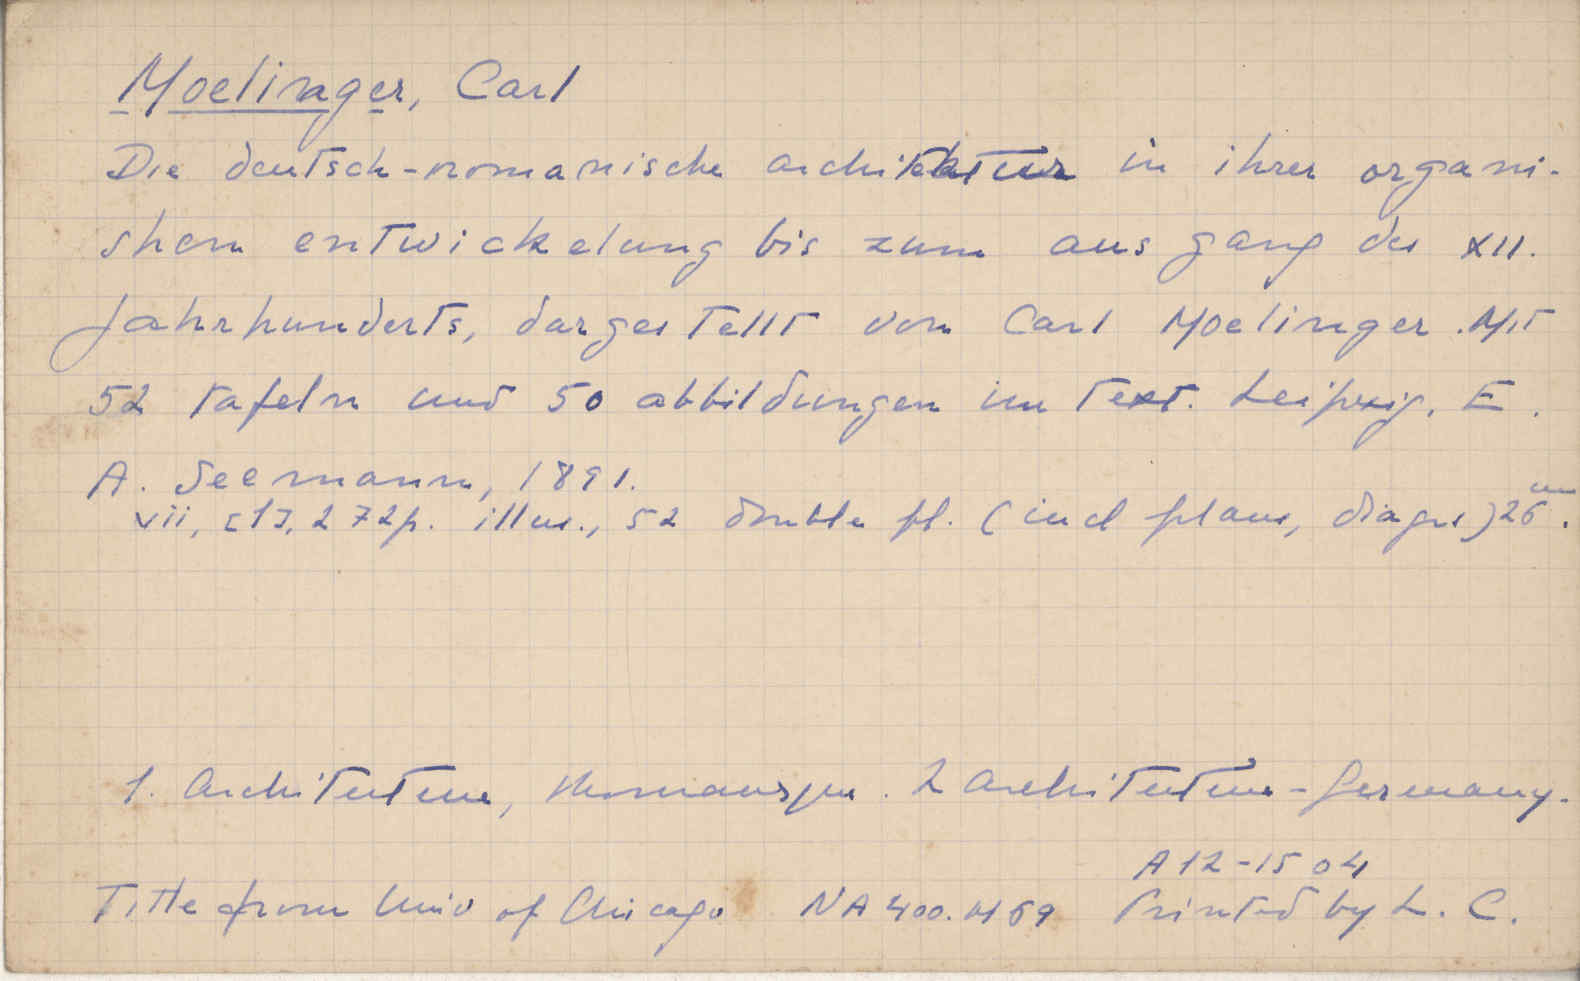 Moelinger, Carl
Die deutsch-romanische architektur in ihrer organi-
shen entwickelung bis zum ausgang des XII.
Jahrhunderts, dargestellt von Carl Moelinger. Mit
52 tafeln und 50 abbildungen im text. Leipzig, E.
A. Seemann, 1891.
vii, [1], 272p. illus., 52 double pl. (incl plans, diagrs) 26 cm.
1. Architecture, Romanesque. 2 Architecture - Germany.
A 12-1504
Title from Univ of Chicago NA400.M69 Printed by L. C.